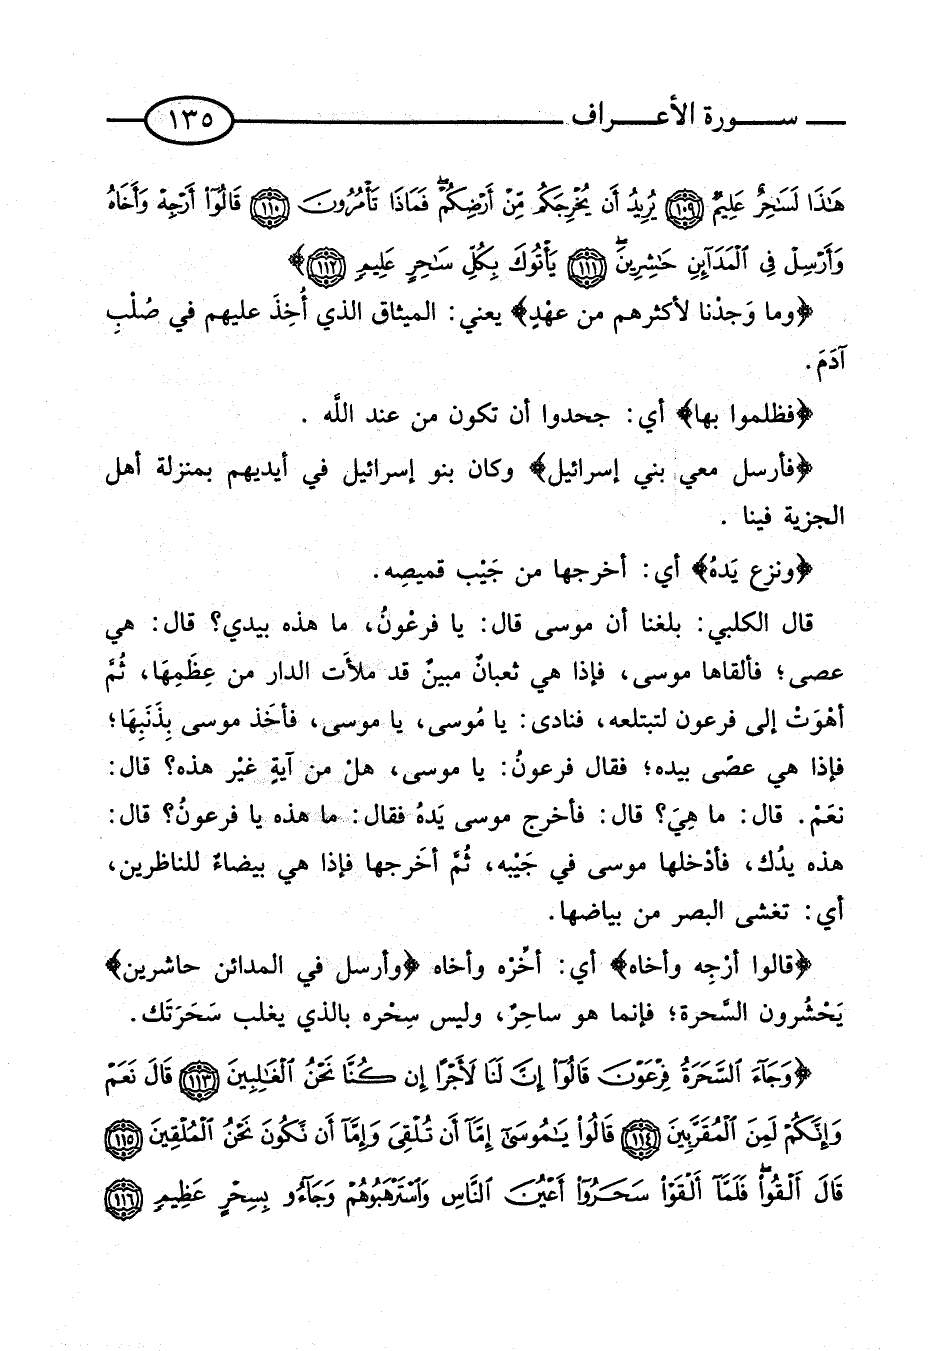 سورة الأعراف ١٣٥
هَٰذَا لَسَٰحِرٌ عَلِيمٌ ١٠٩ يُرِيدُ أَن يُخْرِجَكُم مِّنْ أَرْضِكُمْ ۖ فَمَاذَا تَأْمُرُونَ ١١٠ قَالُوٓا۟ أَرْجِهْ وَأَخَاهُ
وَأَرْسِلْ فِى ٱلْمَدَآئِنِ حَٰشِرِينَ ۖ ١١١ يَأْتُوكَ بِكُلِّ سَٰحِرٍ عَلِيمٍ ١١٢﴾
﴿وما وَجدْنا لأكثرهم من عهْدٍ﴾ يعني: الميثاق الذي أُخِذَ عليهم في صُلْبِ
آدَمَ.
﴿فظلموا بها﴾ أي: جحدوا أن تكون من عند اللَّه .
﴿فأرسل معي بني إسرائيل﴾ وكان بنو إسرائيل في أيديهم بمنزلة أهل
الجزية فينا .
﴿ونزع يَدهُ﴾ أي: أخرجها من جَيْب قميصِه.
قال الكلبي: بلغنا أن موسى قال: يا فرعْونُ، ما هذه بيدي؟ قال: هي
عصى؛ فألقاها موسى، فإذا هي ثعبانٌ مبينٌ قد ملأَت الدار من عِظَمِهَا، ثُمَّ
أهْوَتْ إلى فرعون لتبتلعه، فنادى: يا مُوسى، يا موسى، فأخَذ موسى بِذَنَبِهَا؛
فإذا هي عصًى بيده؛ فقال فرعونُ: يا موسى، هلْ من آيةٍ غيْر هذه؟ قال:
نعَمْ. قال: ما هِيَ؟ قال: فأخرج موسى يَدهُ فقال: ما هذه يا فرعونُ؟ قال:
هذه يدُك، فأدْخلها موسى في جَيْبه، ثُمَّ أخَرجها فإذا هي بيضاءُ للناظرين،
أي: تغشى البصر من بياضها.
﴿قالوا أرْجِه وأخاه﴾ أي: أخِّرْه وأخاه ﴿وأرسل في المدائن حاشرين﴾
يَحْشُرون السَّحرة؛ فإنما هو ساحِرٌ، وليس سِحْره بالذي يغلب سَحَرَتَك.
﴿وَجَآءَ ٱلسَّحَرَةُ فِرْعَوْنَ قَالُوٓا۟ إِنَّ لَنَا لَأَجْرًا إِن كُنَّا نَحْنُ ٱلْغَٰلِبِينَ ١١٣ قَالَ نَعَمْ
وَإِنَّكُمْ لَمِنَ ٱلْمُقَرَّبِينَ ١١٤ قَالُوا۟ يَٰمُوسَىٰٓ إِمَّآ أَن تُلْقِىَ وَإِمَّآ أَن نَّكُونَ نَحْنُ ٱلْمُلْقِينَ ١١٥
قَالَ أَلْقُوا۟ ۖ فَلَمَّآ أَلْقَوْا۟ سَحَرُوٓا۟ أَعْيُنَ ٱلنَّاسِ وَٱسْتَرْهَبُوهُمْ وَجَآءُو بِسِحْرٍ عَظِيمٍ ١١٦